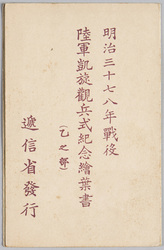 明治三十七八年戰後
陸軍凱旋觀兵式紀念繪葉書
(乙之部)
遞信省發行